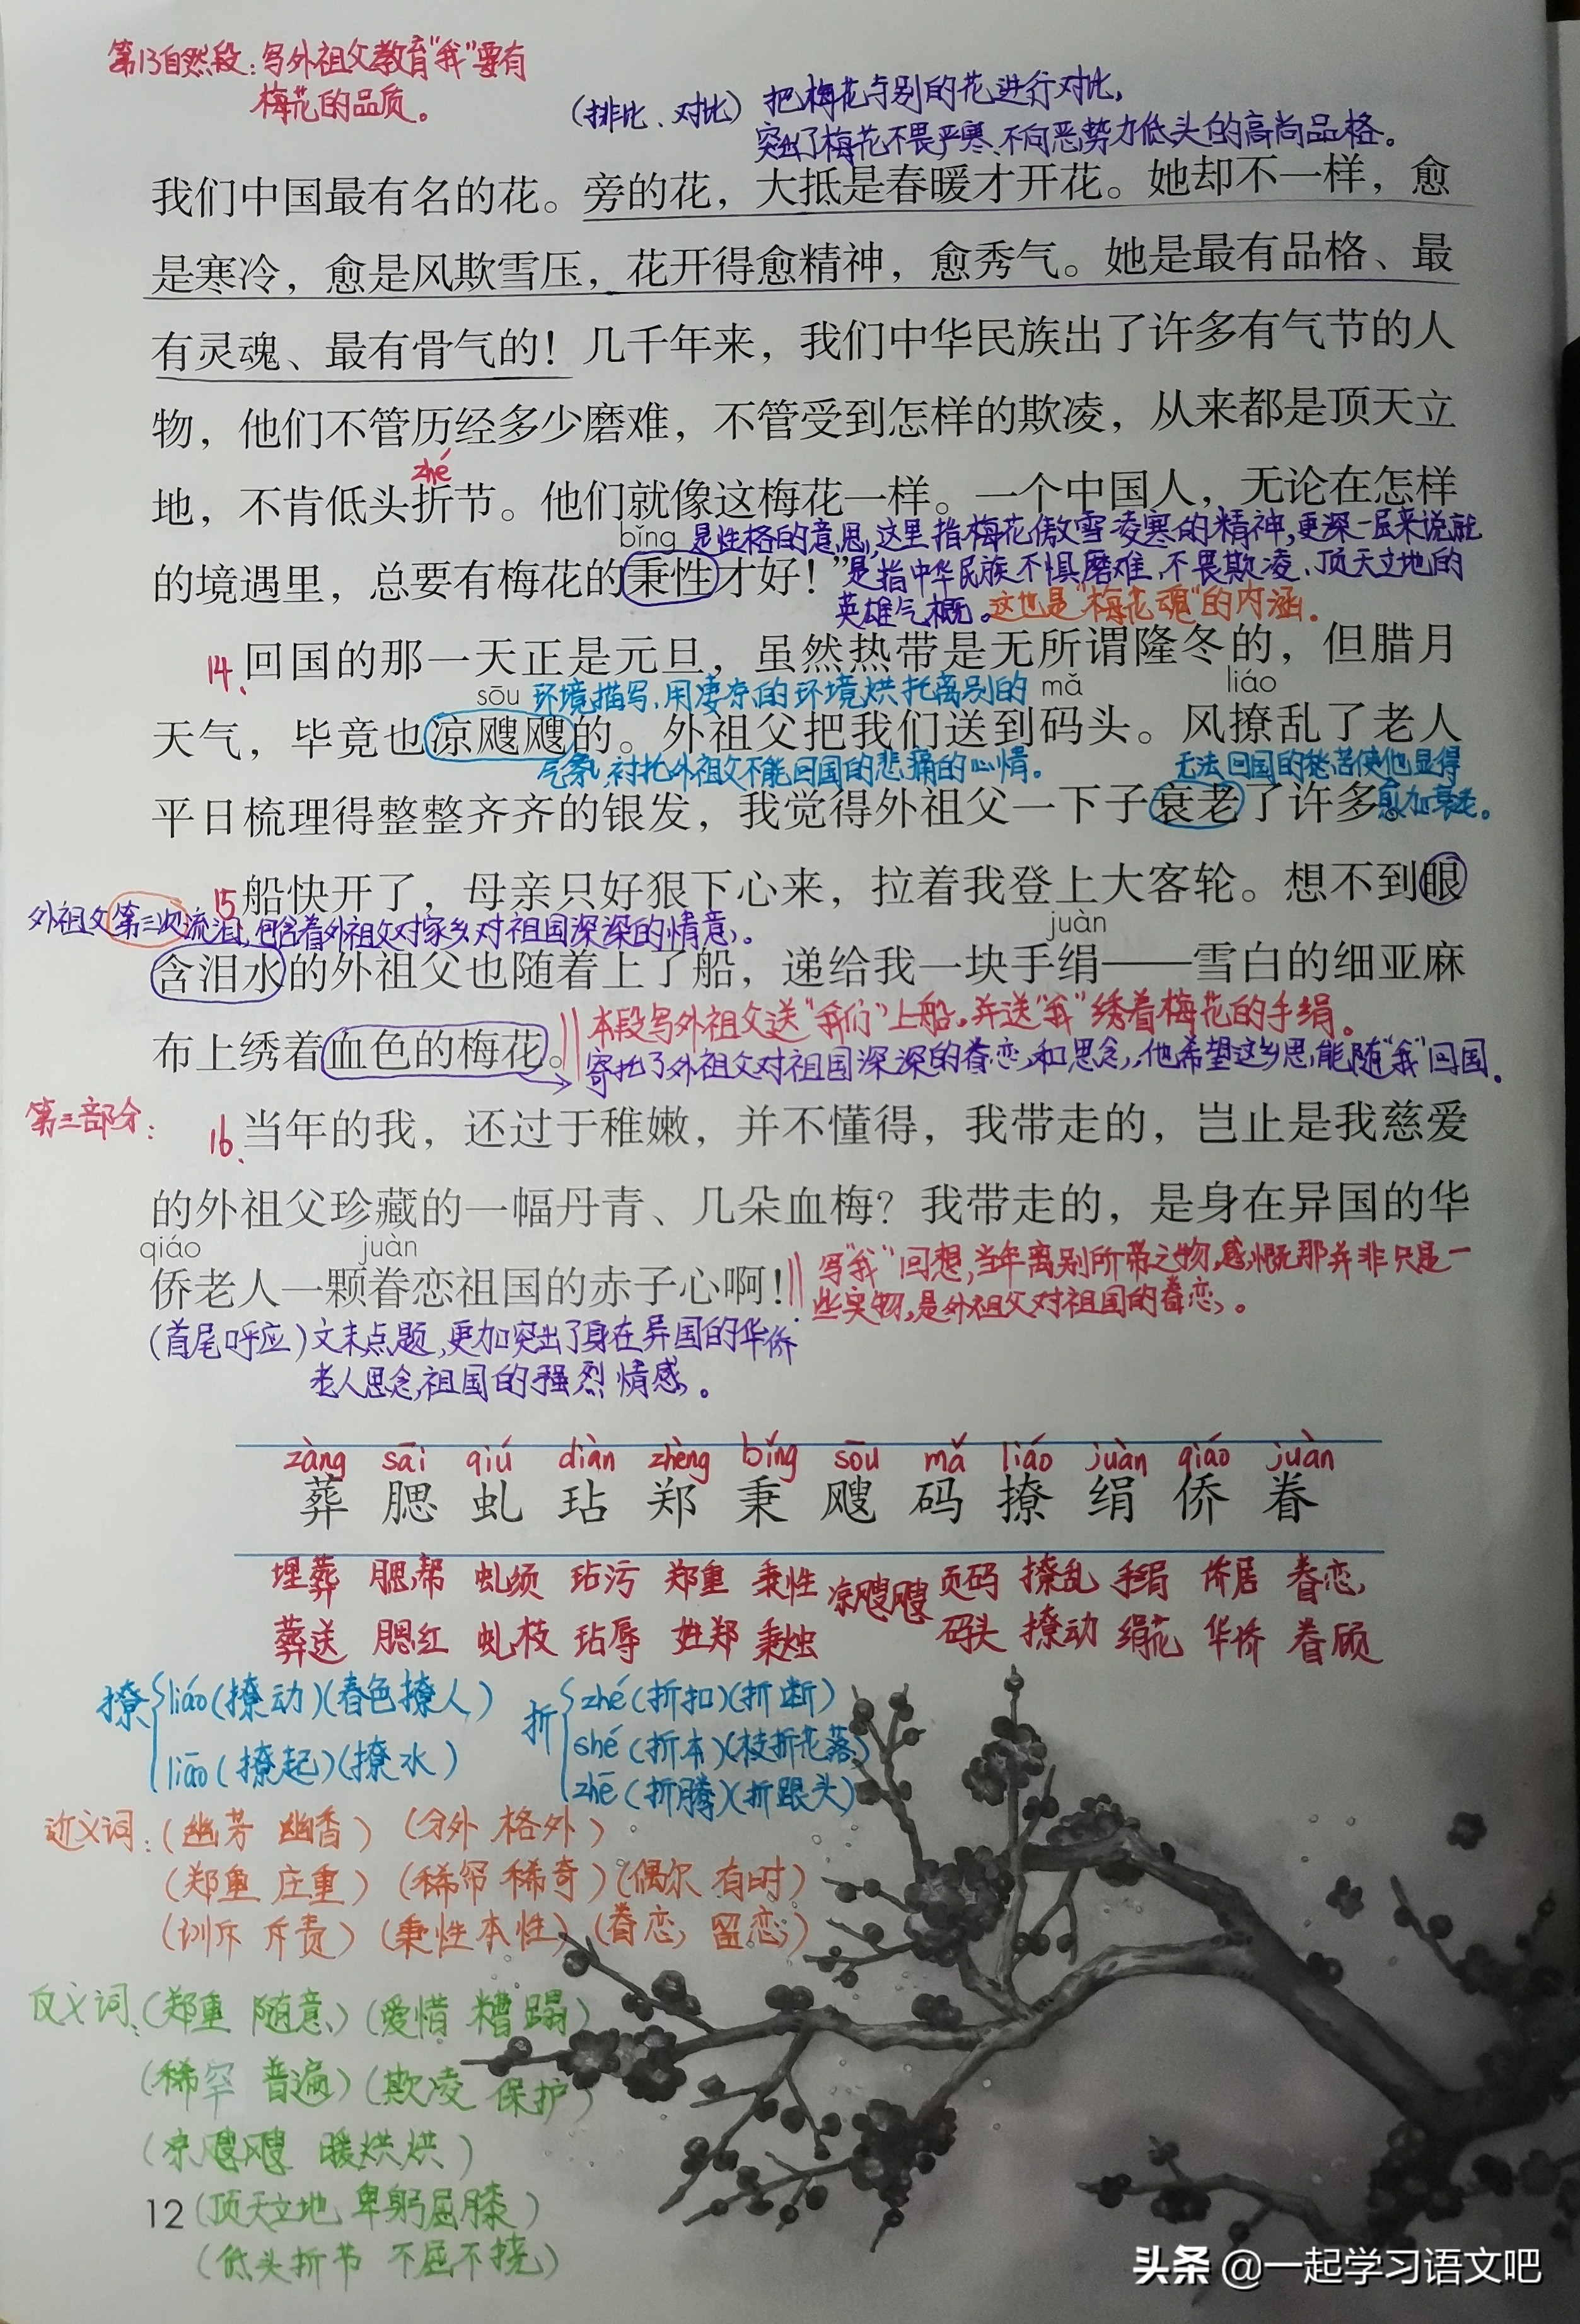 第13自然段：写外祖父教育“我”要有
梅花的品质。
（排比、对比）把梅花与别的花进行对比，
突出了梅花不畏严寒、不向恶势力低头的高尚品格。
我们中国最有名的花。旁的花，大抵是春暖才开花。她却不一样，愈
是寒冷，愈是风欺雪压，花开得愈精神，愈秀气。她是最有品格、最
有灵魂、最有骨气的！几千年来，我们中华民族出了许多有气节的人
物，他们不管历经多少磨难，不管受到怎样的欺凌，从来都是顶天立
zhé
地，不肯低头折节。他们就像这梅花一样。一个中国人，无论在怎样
bǐng 是性格的意思，这里指梅花傲雪凌寒的精神，更深一层来说就
的境遇里，总要有梅花的秉性才好！”是指中华民族不惧磨难、不畏欺凌、顶天立地的
英雄气概。这也是“梅花魂”的内涵。
14、回国的那一天正是元旦，虽然热带是无所谓隆冬的，但腊月
sōu 环境描写，用凄凉的环境烘托离别的 mǎ liáo
天气，毕竟也凉飕飕的。外祖父把我们送到码头。风撩乱了老人
气氛，衬托外祖父不能回国的悲痛的心情。 无法回国的愁苦使他显得
平日梳理得整整齐齐的银发，我觉得外祖父一下子衰老了许多。愈加衰老。
15船快开了，母亲只好狠下心来，拉着我登上大客轮。想不到眼
外祖父第三次流泪，包含着外祖父对家乡对祖国深深的情意。 juàn
含泪水的外祖父也随着上了船，递给我一块手绢——雪白的细亚麻
本段写外祖父送“我们”上船。并送“我”绣着梅花的手绢。
布上绣着血色的梅花。
寄托了外祖父对祖国深深的眷恋和思念，他希望这乡思能随“我”回国。
第三部分：
16、当年的我，还过于稚嫩，并不懂得，我带走的，岂止是我慈爱
的外祖父珍藏的一幅丹青、几朵血梅？我带走的，是身在异国的华
qiáo juàn 写“我”回想，当年离别所带之物，感慨那并非只是一
侨老人一颗眷恋祖国的赤子心啊！
些实物，是外祖父对祖国的眷恋。
（首尾呼应）文末点题，更加突出了身在异国的华侨
老人思念祖国的强烈情感。
zàng sāi qiú diàn zhèng bǐng sōu mǎ liáo juàn qiáo juàn
葬 腮 虬 玷 郑 秉 飕 码 撩 绢 侨 眷
埋葬 腮帮 虬须 玷污 郑重 秉性 凉飕飕 页码 撩乱 手绢 侨居 眷恋
葬送 腮红 虬枝 玷辱 姓郑 秉烛 码头 撩动 绢花 华侨 眷顾
撩 liáo（撩动）（春色撩人）
liāo（撩起）（撩水）
折 zhé（折扣）（折断）
shé（折本）（枝折花落）
zhē（折腾）（折跟头）
近义词：（幽芳 幽香）（分外 格外）
（郑重 庄重）（稀罕 稀奇）（偶尔 有时）
（训斥 斥责）（秉性 本性）（眷恋 留恋）
反义词：（郑重 随意）（爱惜 糟蹋）
（稀罕 普遍）（欺凌 保护）
（凉飕飕 暖烘烘）
12（顶天立地 卑躬屈膝）
（低头折节 不屈不挠）
头条 @一起学习语文吧